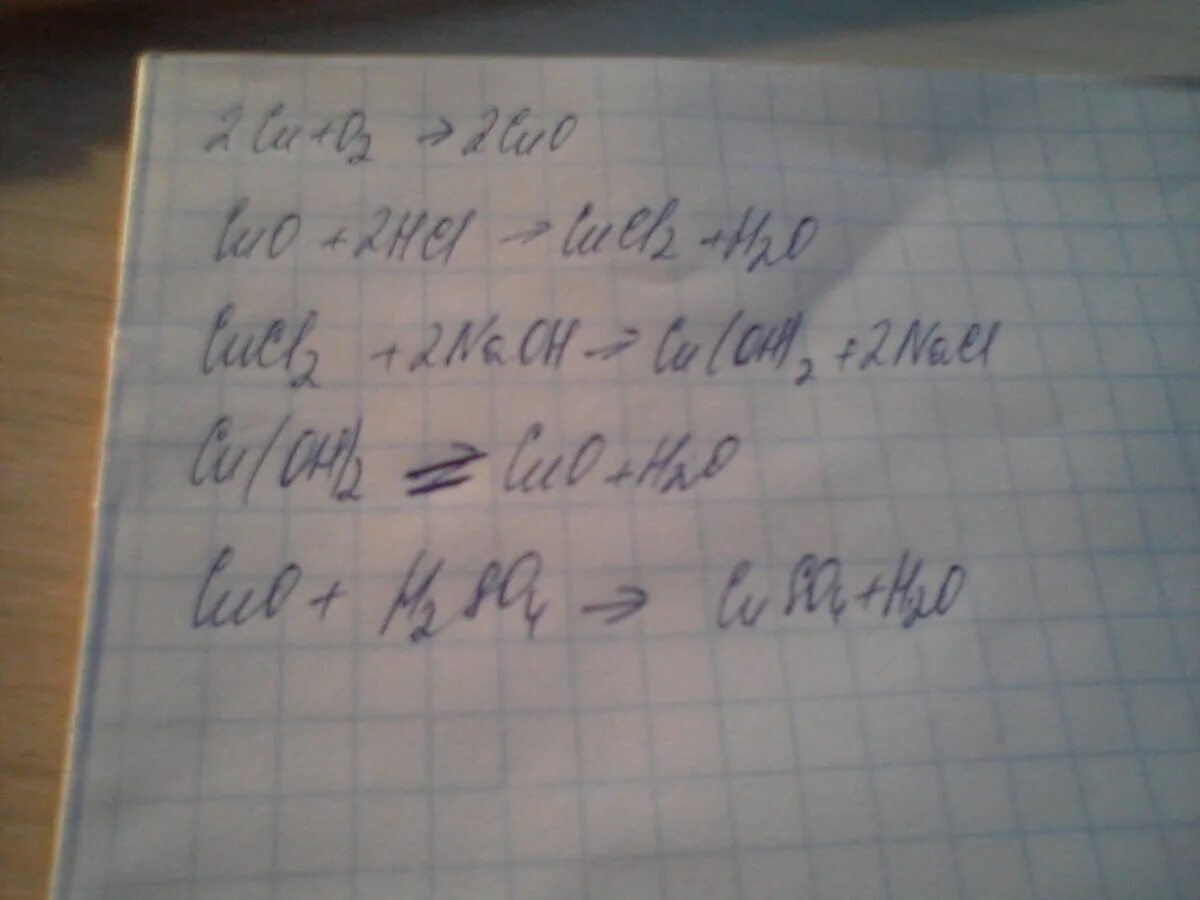 2Cu+O2 → 2CuO
CuO + 2HCl → CuCl2 + H2O
CuCl2 + 2NaOH → Cu(OH)2 + 2NaCl
Cu(OH)2 = CuO + H2O
CuO + H2SO4 → CuSO4 + H2O